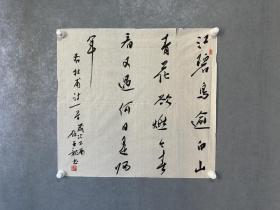 江碧鳥逾白山
青花欲燃今春
看又過何日是歸
年
杜甫诗一首